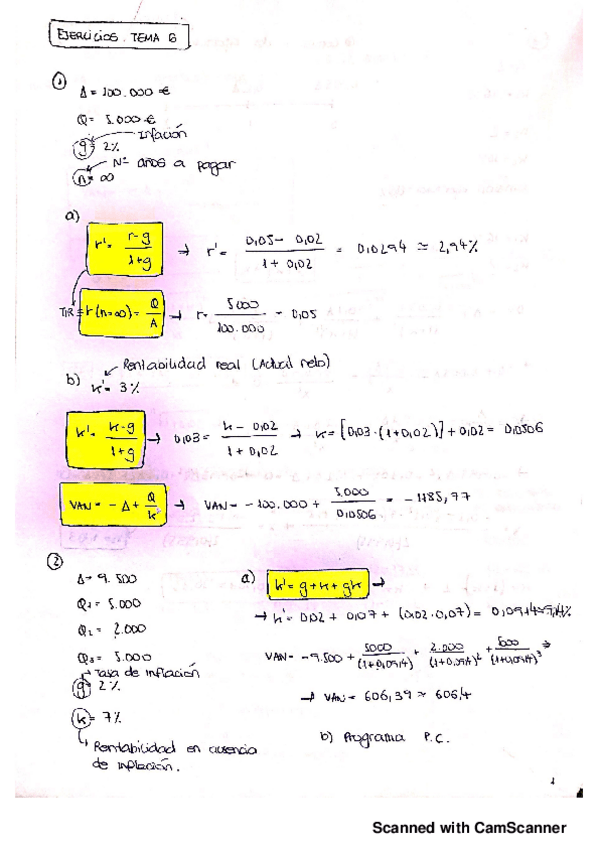 EJERCICIOS. TEMA 6
①
A = 100.000 €
Q = 5.000 €
g = 2%
Inflación
Nº años a pagar
n = ∞
a)
r' = r-g / 1+g → r' = 0,05 - 0,02 / 1 + 0,02 = 0,0294 ≃ 2,94%
TIR = r (n=∞) = Q / A → r = 5000 / 100.000 = 0,05
Rentabilidad real (Actual neto)
b) k' = 3%
k' = k-g / 1+g → 0,03 = k - 0,02 / 1 + 0,02 → k = [0,03 · (1+0,02)] + 0,02 = 0,0506
VAN = - A + Q / k → VAN = - 100.000 + 5.000 / 0,0506 = - 1185,77
②
A = 9.500
Q1 = 5.000
Q2 = 2.000
Q3 = 5.000
Tasa de inflación
g = 2%
k = 7%
Rentabilidad en ausencia
de inflación.
a) k' = g + k + gk →
→ k' = 0,02 + 0,07 + (0,02 · 0,07) = 0,0914 ≃ 9,14%
VAN = - 9.500 + 5000 / (1+0,0914) + 2.000 / (1+0,0914)² + 5000 / (1+0,0914)³ ⇒
→ VAN = 606,39 ≃ 606,4
b) Programa P.C.
1
Scanned with CamScanner